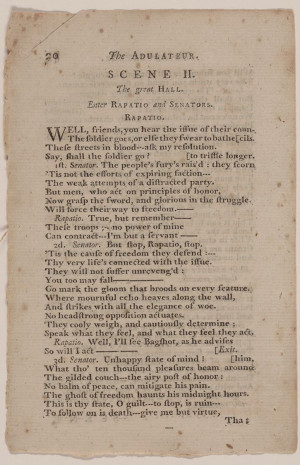 20 The ADULATEUR.
SCENE II.
The great HALL.
Enter RAPATIO and SENATORS.
RAPATIO.
WELL, friends, you hear the issue of their coun-
The soldier goes, or else they swear to bathe [cils.
These streets in blood--ask my resolution.
Say, shall the soldier go? [to trifle longer.
1st. Senator. The people's fury's rais'd : they scorn
'Tis not the efforts of expiring faction---
The weak attempts of a distracted party.
But men, who act on principles of honor,
Now grasp the sword, and glorious in the struggle.
Will force their way to freedom.——
Rapatio. True, but remember——
These troops ;--no power of mine
Can contract--I'm but a servant —
2d. Senator. But stop, Rapatio, stop.
'Tis the cause of freedom they defend :--
Thy very life's connected with the issue.
They will not suffer unreveng'd :
You too may fall———
Go mark the gloom that broods on every feature.
Where mournful echo heaves along the wall,
And strikes with all the elegance of woe.
No headstrong opposition actuates,
They cooly weigh, and cautiously determine ;
Speak what they feel, and what they feel they act.
Rapatio. Well, I'll see Bagshot, as he advises
So will I act——— [Exit.
2d. Senator. Unhappy state of mind ! [him,
What tho' ten thousand pleasures beam around
The gilded couch--the airy post of honor :
No balm of peace, can mitigate his pain.
The ghost of freedom haunts his midnight hours.
This is thy state, O guilt--to stop, is ruin---
To follow on is death--give me but virtue,
Tha: